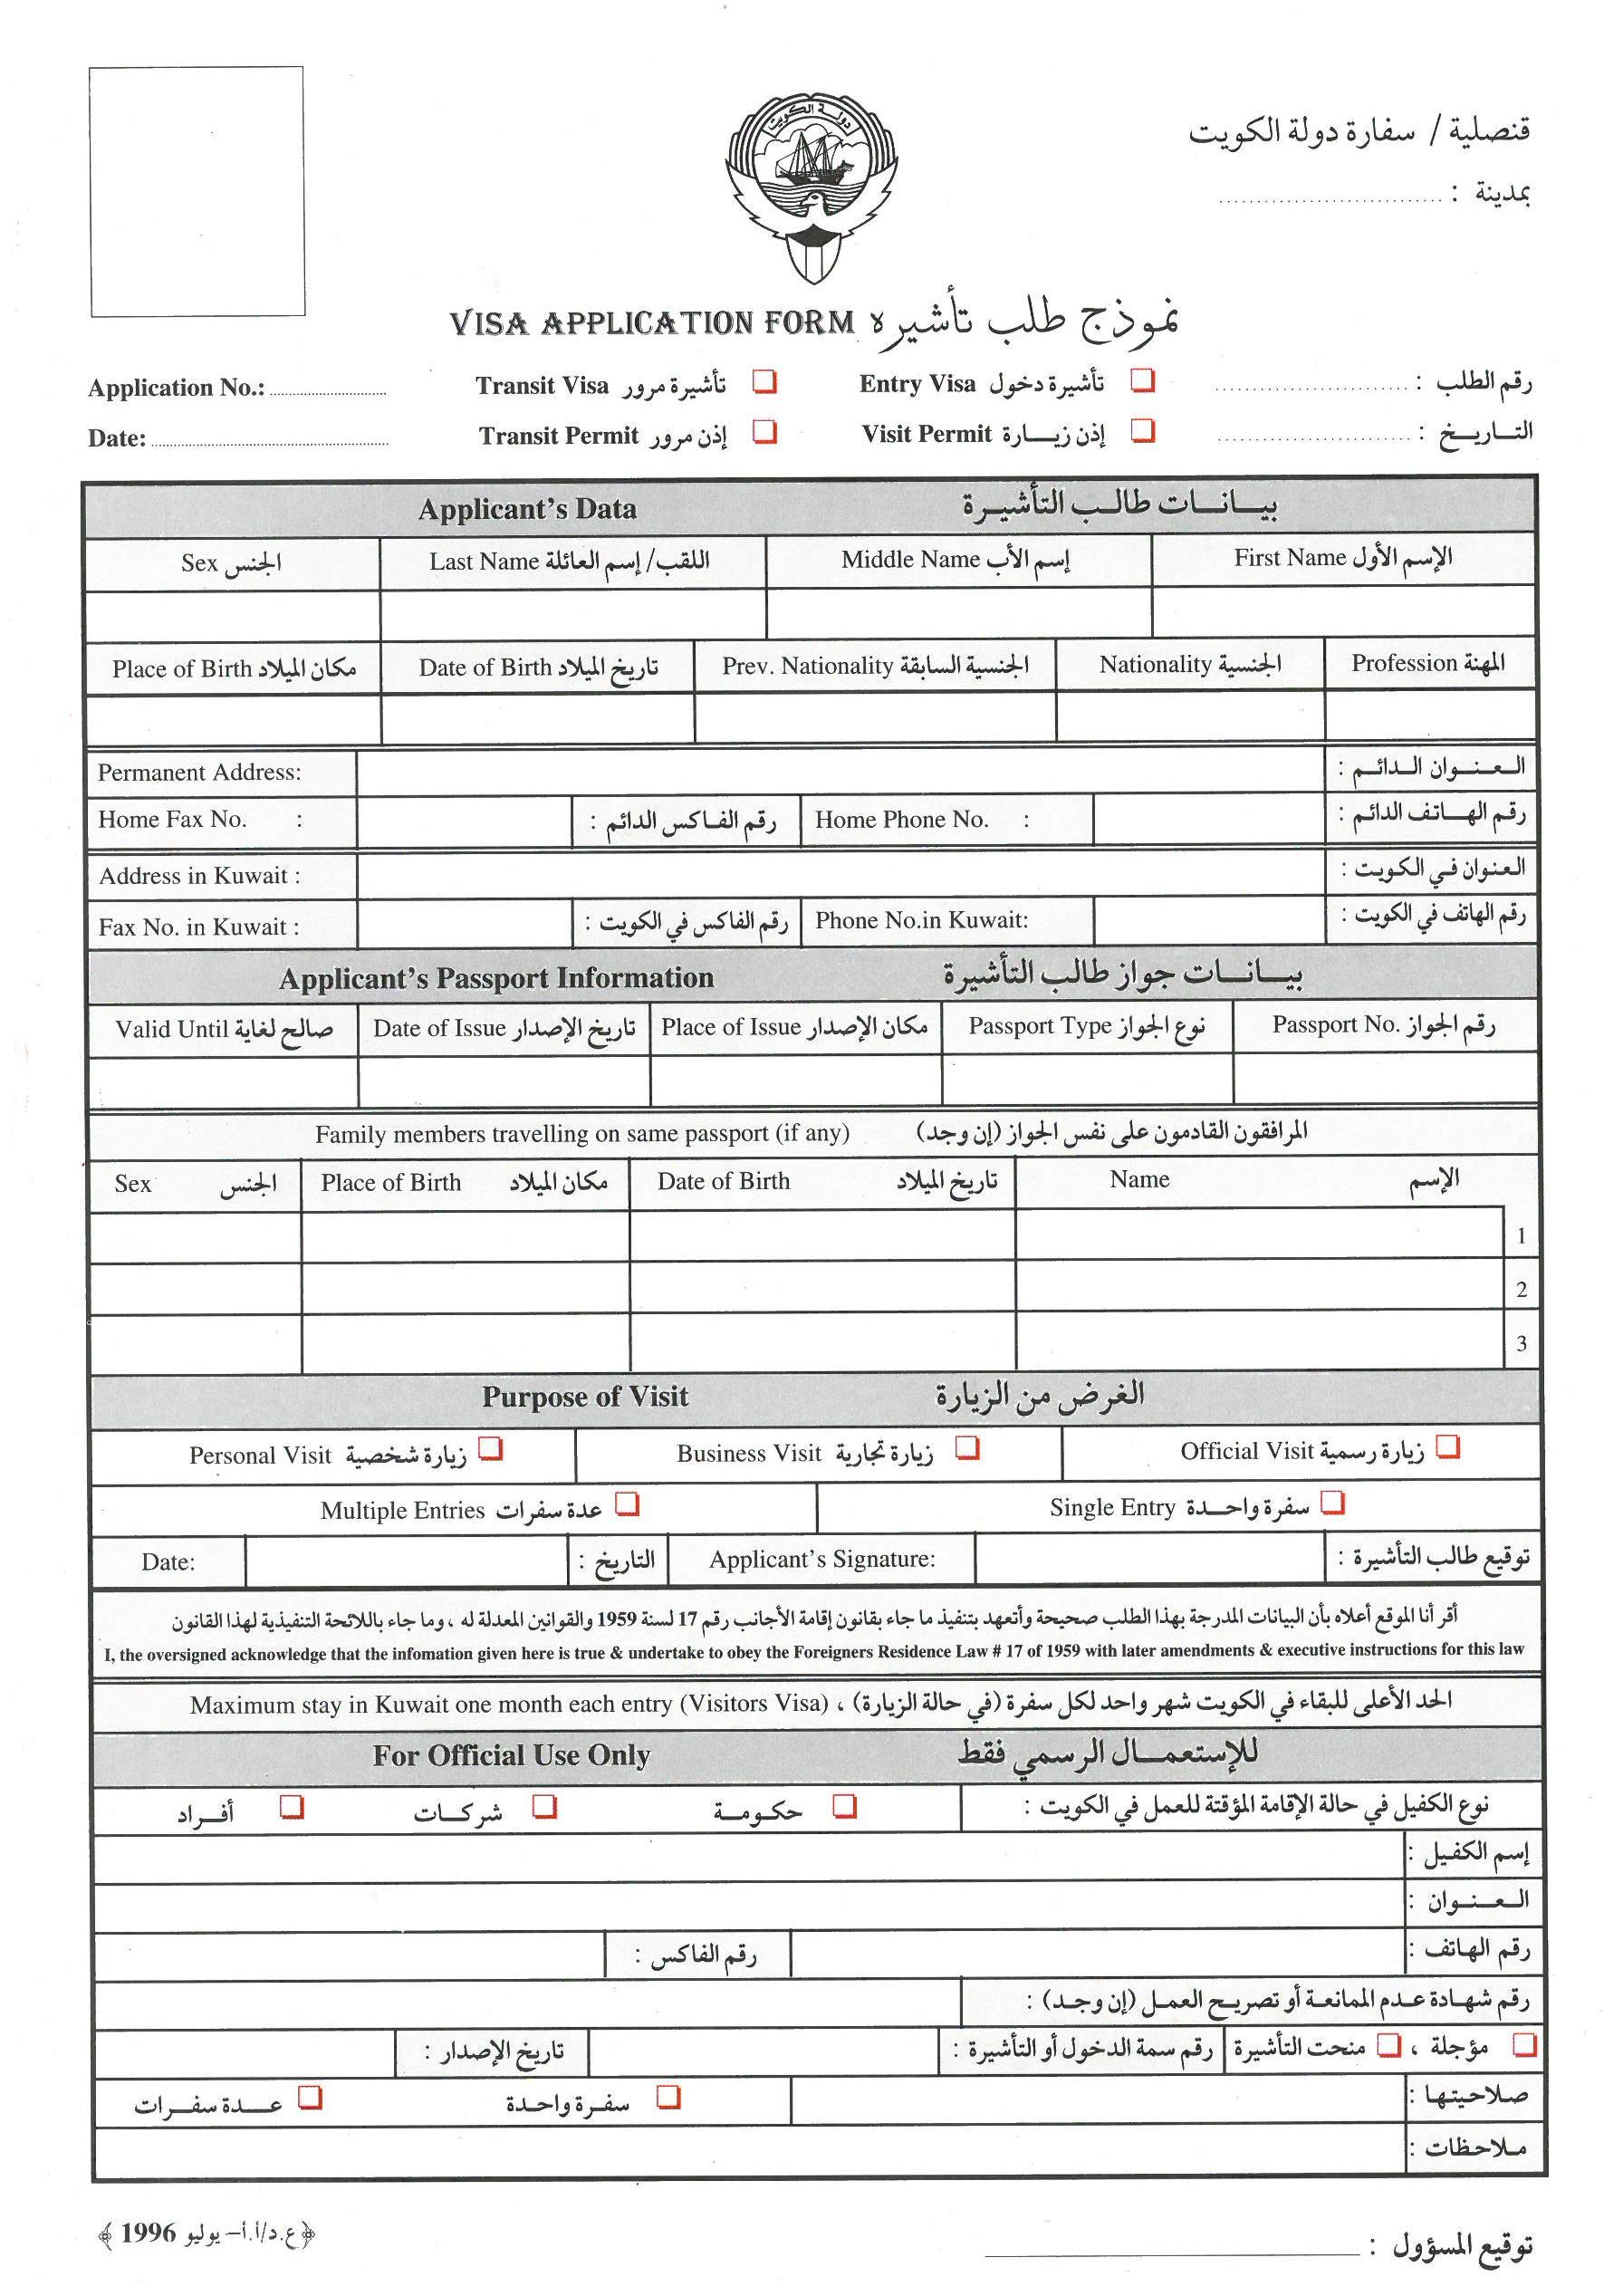 دولة الكويت
قنصلية / سفارة دولة الكويت
بمدينة : ............................
VISA APPLICATION FORM نموذج طلب تأشيره
Application No.: ............................ Transit Visa تأشيرة مرور Entry Visa تأشيرة دخول رقم الطلب : ............................
Date: ............................ Transit Permit إذن مرور Visit Permit إذن زيـــارة التــاريــخ : ............................
Applicant's Data بيــانــات طالــب التـأشيــرة
Sex الجنس Last Name اللقب/ إسم العائلة Middle Name إسم الأب First Name الإسم الأول
Place of Birth مكان الميلاد Date of Birth تاريخ الميلاد Prev. Nationality الجنسية السابقة Nationality الجنسية Profession المهنة
Permanent Address: العـنــوان الـدائــم :
Home Fax No. : رقم الفـاكس الدائم : Home Phone No. : رقم الهــاتف الدائم :
Address in Kuwait : العنوان فـي الكويت :
Fax No. in Kuwait : رقم الفاكس في الكويت : Phone No.in Kuwait: رقم الهاتف في الكويت :
Applicant's Passport Information بيــانــات جواز طالب التـأشيرة
Valid Until صالح لغاية Date of Issue تاريخ الإصدار Place of Issue مكان الإصدار Passport Type نوع الجواز Passport No. رقم الجواز
Family members travelling on same passport (if any) المرافقون القادمون على نفس الجواز (إن وجد)
Sex الجنس Place of Birth مكان الميلاد Date of Birth تاريخ الميلاد Name الإسم
1
2
3
Purpose of Visit الغرض من الزيارة
Personal Visit زيارة شخصية Business Visit زيارة تجارية Official Visit زيارة رسمية
Multiple Entries عدة سفرات Single Entry سفرة واحــدة
Date: التاريخ : Applicant's Signature: توقيع طالب التأشيرة :
أقر أنا الموقع أعلاه بأن البيانات المدرجة بهذا الطلب صحيحة وأتعهد بتنفيذ ما جاء بقانون إقامة الأجانب رقم 17 لسنة 1959 والقوانين المعدلة له ، وما جاء باللائحة التنفيذية لهذا القانون
I, the oversigned acknowledge that the infomation given here is true & undertake to obey the Foreigners Residence Law # 17 of 1959 with later amendments & executive instructions for this law
Maximum stay in Kuwait one month each entry (Visitors Visa) ، الحد الأعلى للبقاء في الكويت شهر واحد لكل سفرة (في حالة الزيارة)
For Official Use Only للإستعمــال الرسمي فقط
نوع الكفيل في حالة الإقامة المؤقتة للعمل في الكويت : حكـومــة شركــات أفــراد
إسم الكفيل :
العـنــوان :
رقم الهاتف : رقم الفاكس :
رقم شهـادة عـدم الممانعـة أو تصريـح العمـل (إن وجـد) :
مؤجلة ، منحت التأشيرة رقم سمة الدخول أو التأشيرة : تاريخ الإصدار :
صلاحيتهـا : سفـرة واحـدة عــدة سفــرات
ملاحظات :
﴿ع.د/أ.أ– يوليو 1996 ﴾
توقيع المسؤول : ____________________